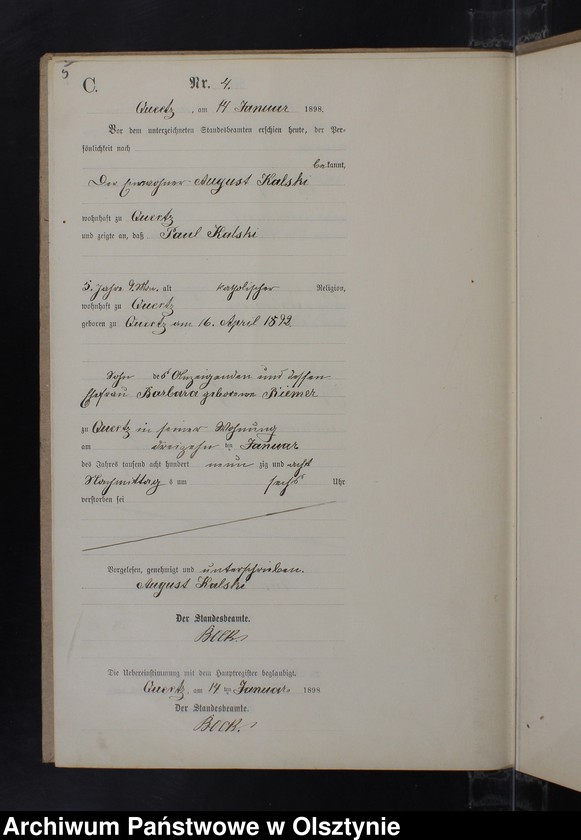 5
C. Nr. 4.
Quertz, am 14 Januar 1898.
Vor dem unterzeichneten Standesbeamten erschien heute, der Per-
sönlichkeit nach
bekannt,
Der Einwohner August Kalski
wohnhaft zu Quertz
und zeigte an, daß Paul Kalski
5. Jahre 9. Mon. alt katholischer Religion,
wohnhaft zu Quertz
geboren zu Quertz am 16. April 1892
Sohn des Anzeigenden und dessen
Ehefrau Barbara geborene Kiemer
zu Quertz in seiner Wohnung
am dreizehn ten Januar
des Jahres tausend acht hundert neun zig und acht
Nachmittag s um sechs Uhr
verstorben sei
Vorgelesen, genehmigt und unterschrieben.
August Kalski
Der Standesbeamte.
Bock
Die Uebereinstimmung mit dem Hauptregister beglaubigt.
Quertz, am 14 ten Januar 1898
Der Standesbeamte.
Bock.
Archiwum Państwowe w Olsztynie